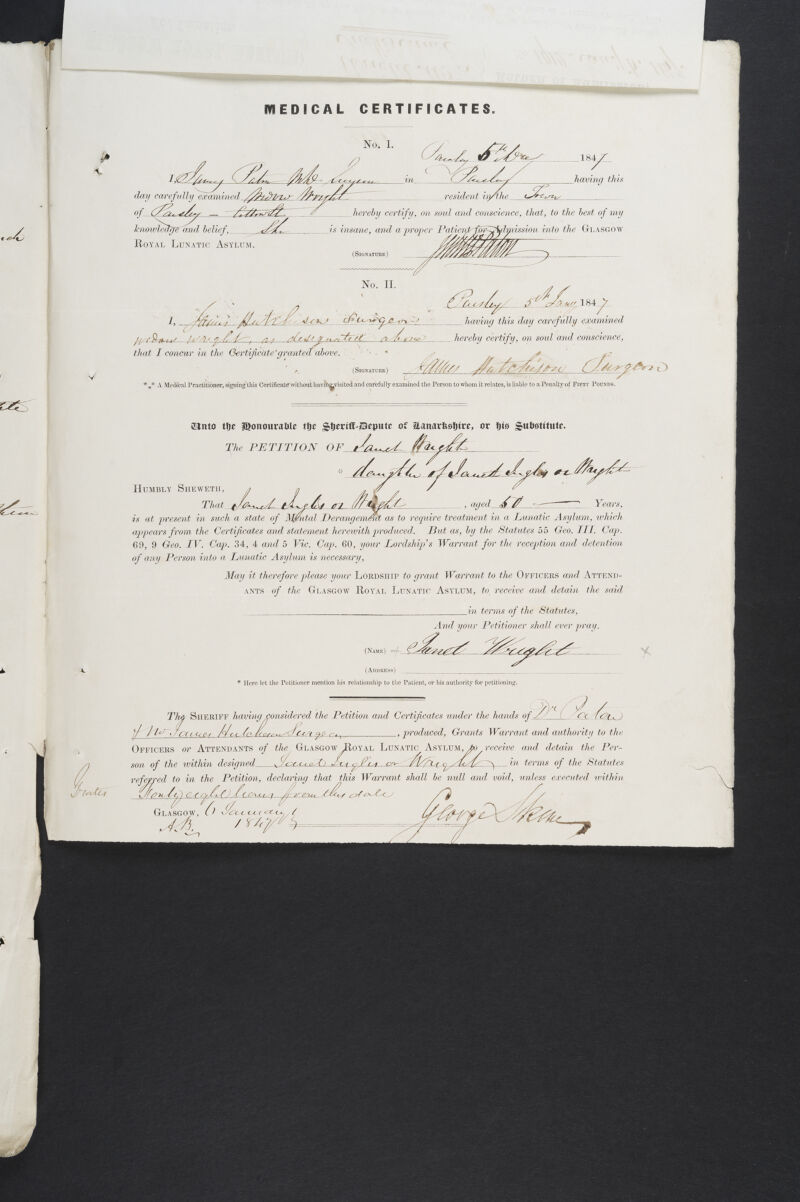 MEDICAL CERTIFICATES.
No. I.
Paisley 5th 1847
I, James Paton MD Surgeon in Paisley having this
day carefully examined Widow Wright resident in the Town
of Paisley — Cotton St hereby certify, on soul and conscience, that, to the best of my
knowledge and belief, She is insane, and a proper Patient for Admission into the GLASGOW
ROYAL LUNATIC ASYLUM.
(SIGNATURE) James Paton
No. II.
Paisley 5th Jany 1847
I, James Hutchison Surgeon having this day carefully examined
widow wright, as designated above hereby certify, on soul and conscience,
that I concur in the Certificate granted above.
(SIGNATURE) James Hutchison Surgeon
*** A Medical Practitioner, signing this Certificate without having visited and carefully examined the Person to whom it relates, is liable to a Penalty of FIFTY POUNDS.
Unto the Honourable the Sheriff-Depute of Lanarkshire, or his Substitute.
The PETITION OF Janet Wright
* daughter of Janet Ingles or Wright
HUMBLY SHEWETH,
That Janet Ingles or Wright, aged 50 — Years,
is at present in such a state of Mental Derangement as to require treatment in a Lunatic Asylum, which
appears from the Certificates and statement herewith produced. But as, by the Statutes 55 Geo. III. Cap.
69, 9 Geo. IV. Cap. 34, 4 and 5 Vic. Cap. 60, your Lordship's Warrant for the reception and detention
of any Person into a Lunatic Asylum is necessary,
May it therefore please your LORDSHIP to grant Warrant to the OFFICERS and ATTEND-
ANTS of the GLASGOW ROYAL LUNATIC ASYLUM, to receive and detain the said
in terms of the Statutes,
And your Petitioner shall ever pray.
(NAME) Janet Wright x
(ADDRESS)
* Here let the Petitioner mention his relationship to the Patient, or his authority for petitioning.
The SHERIFF having considered the Petition and Certificates under the hands of Dr Paton
& Mr James Hutchison Surgeon, produced, Grants Warrant and authority to the
OFFICERS or ATTENDANTS of the GLASGOW ROYAL LUNATIC ASYLUM, to receive and detain the Per-
son of the within designed Janet Ingles or Wright in terms of the Statutes
referred to in the Petition, declaring that this Warrant shall be null and void, unless executed within
Forty eight hours from this date
GLASGOW, 6 January George Skene
A.B. 1847